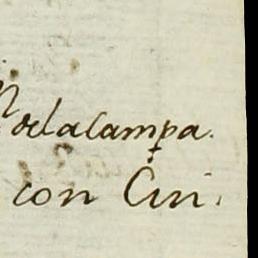 delacampa.
con Cin.